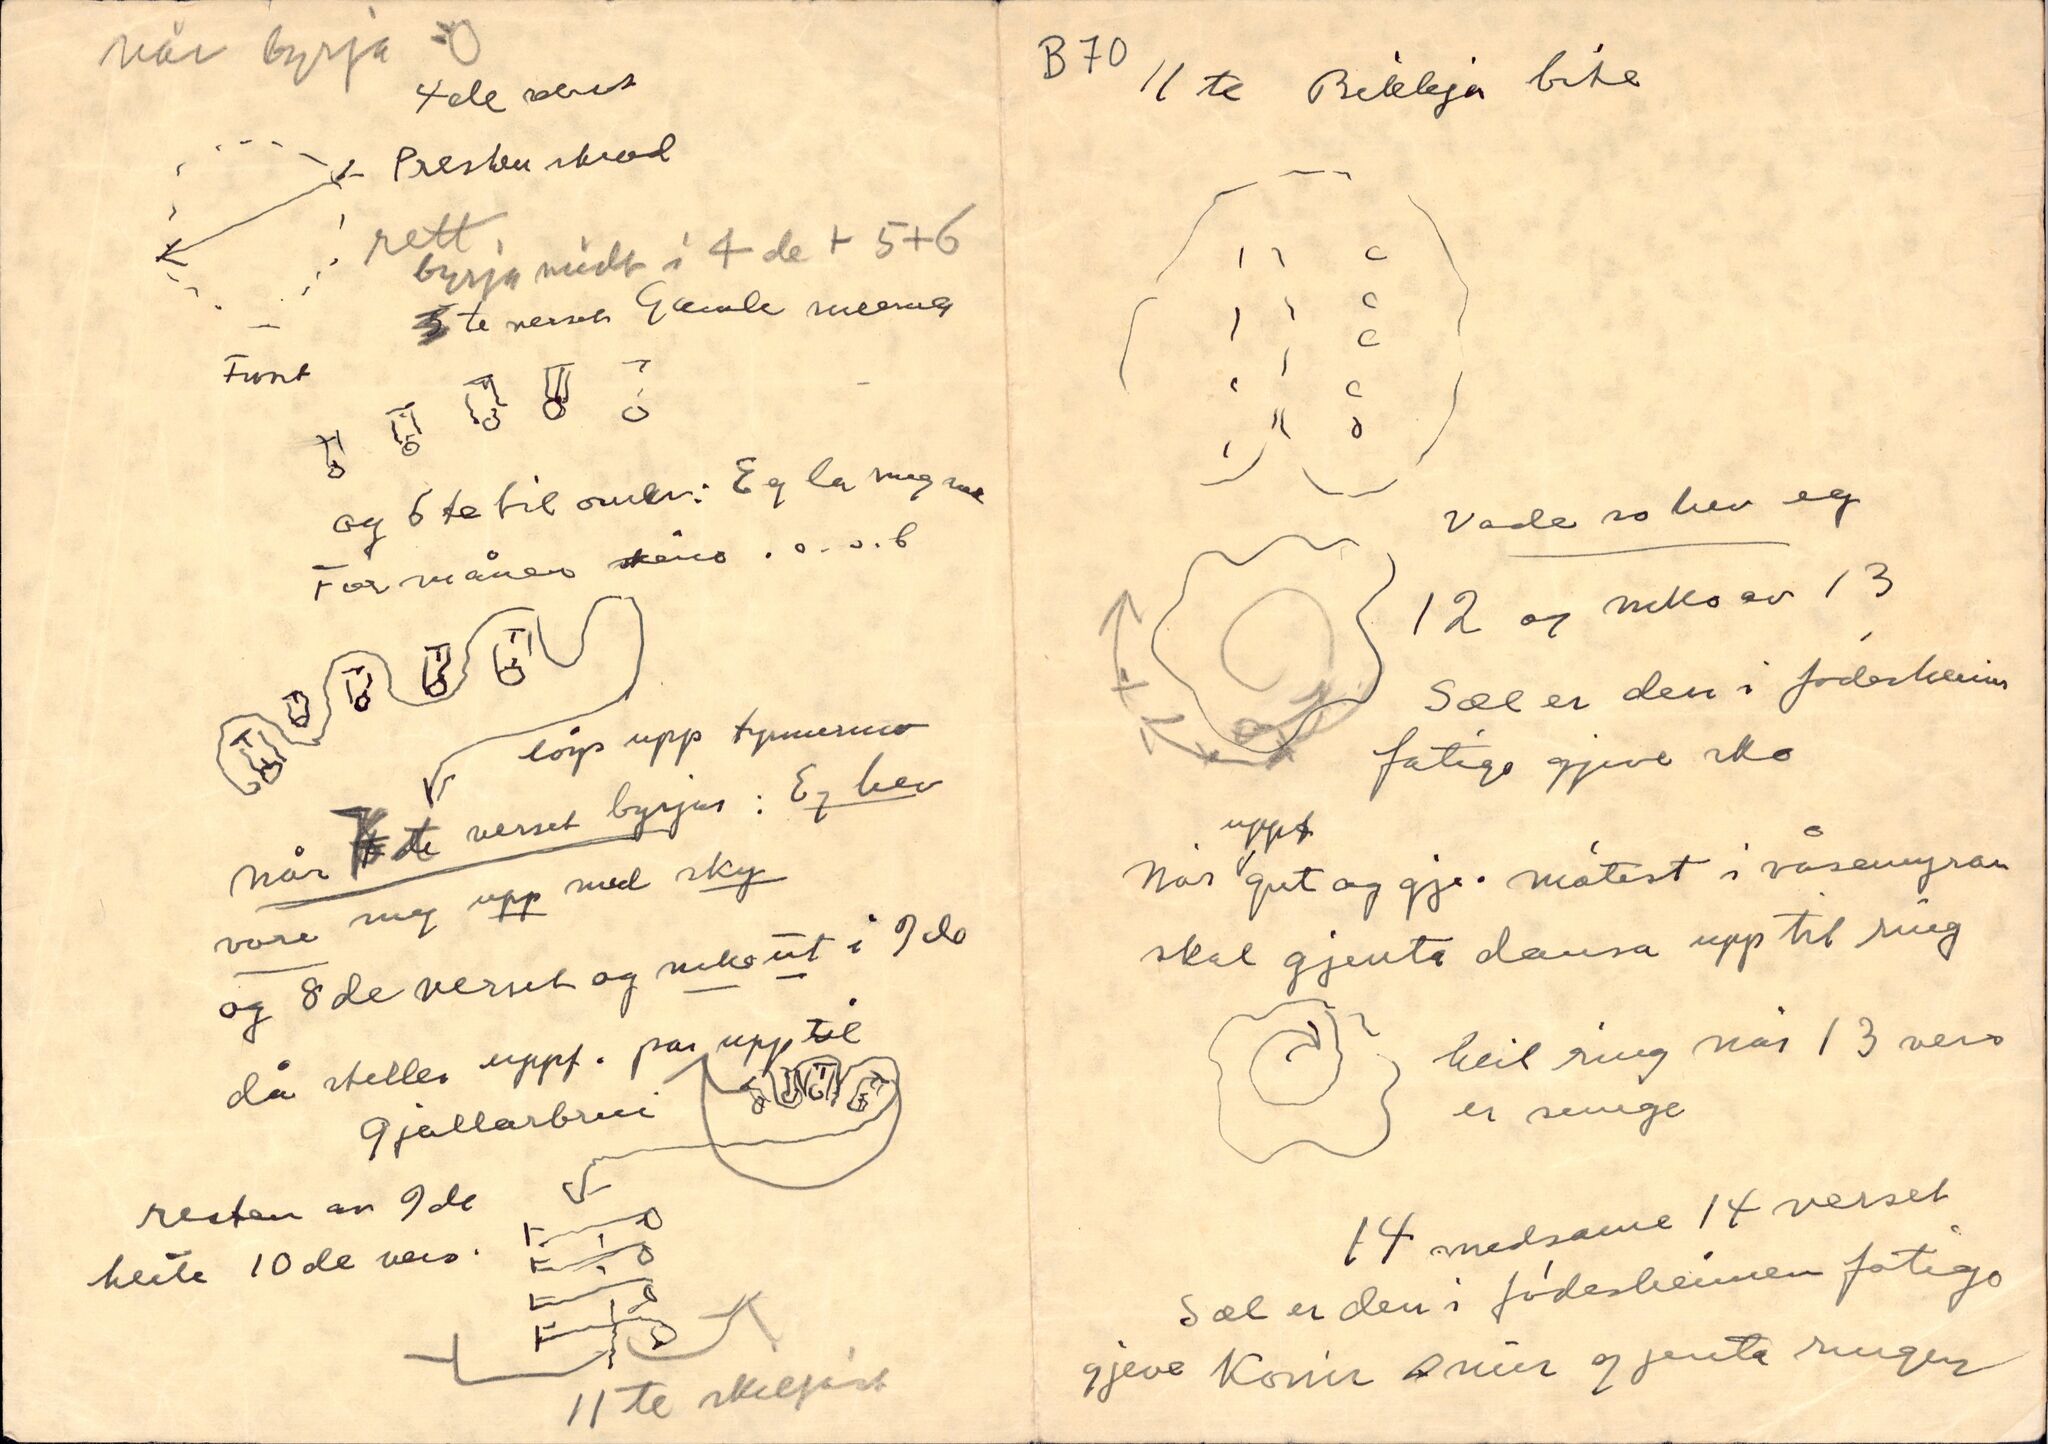 når byrja
4de vers
Presten stend
rett
byrja midt i 4de + 5+6
te verset Gamle
og 6te til omkv: Eg la meg
For månen skine
løyp upp
Når 7de verset byrjar: Eg hev
vore meg upp med sky
og 8de verset og noko ut i 9de
då stelles uppf. par upp til
gjallarbrui
resten av 9de
heile 10de vers.
11te skiljast
B70
11te Bikkja bite
Vade so hev eg
12 og noko av 13
Sæl er den i fødesheimen
fatige gjeve sko
uppf
Når gut og gje. møtest i våsemyran
skal gjenta dansa upp til ring
heil ring når 13 vers
er sunge
14 medsame 14 verset
Sæl er den i fødesheimen fatige
gjeve Korn snur gjenta ringen